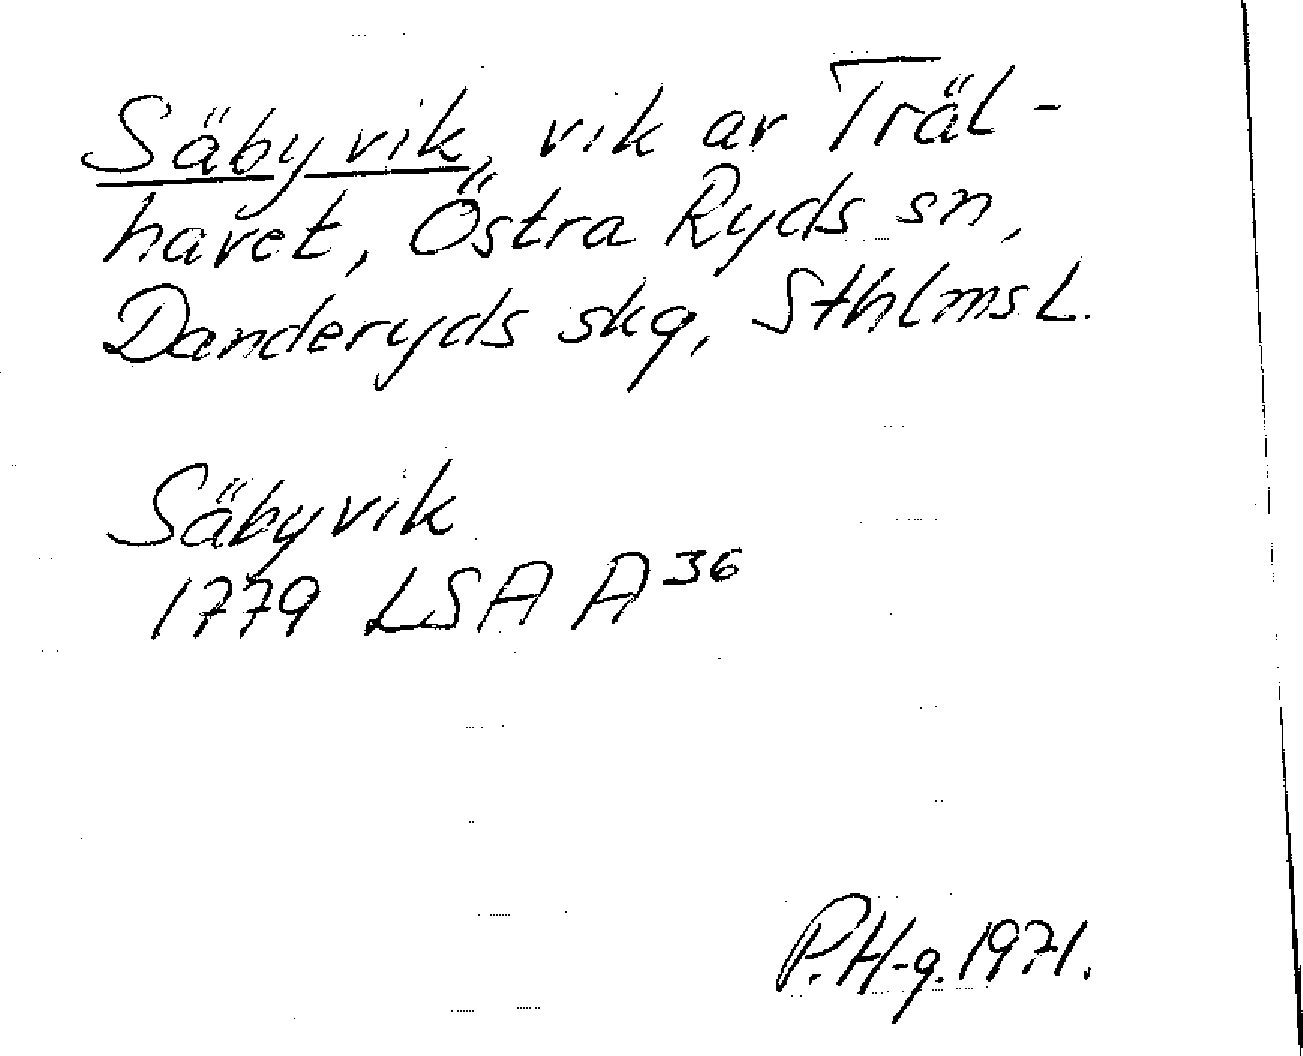 Säbyvik, vik av Träl-
havet, Östra Ryds sn,
Danderyds skg, Sthlms L.
Säbyvik
1779 LSA A36
P.H-g.1971.